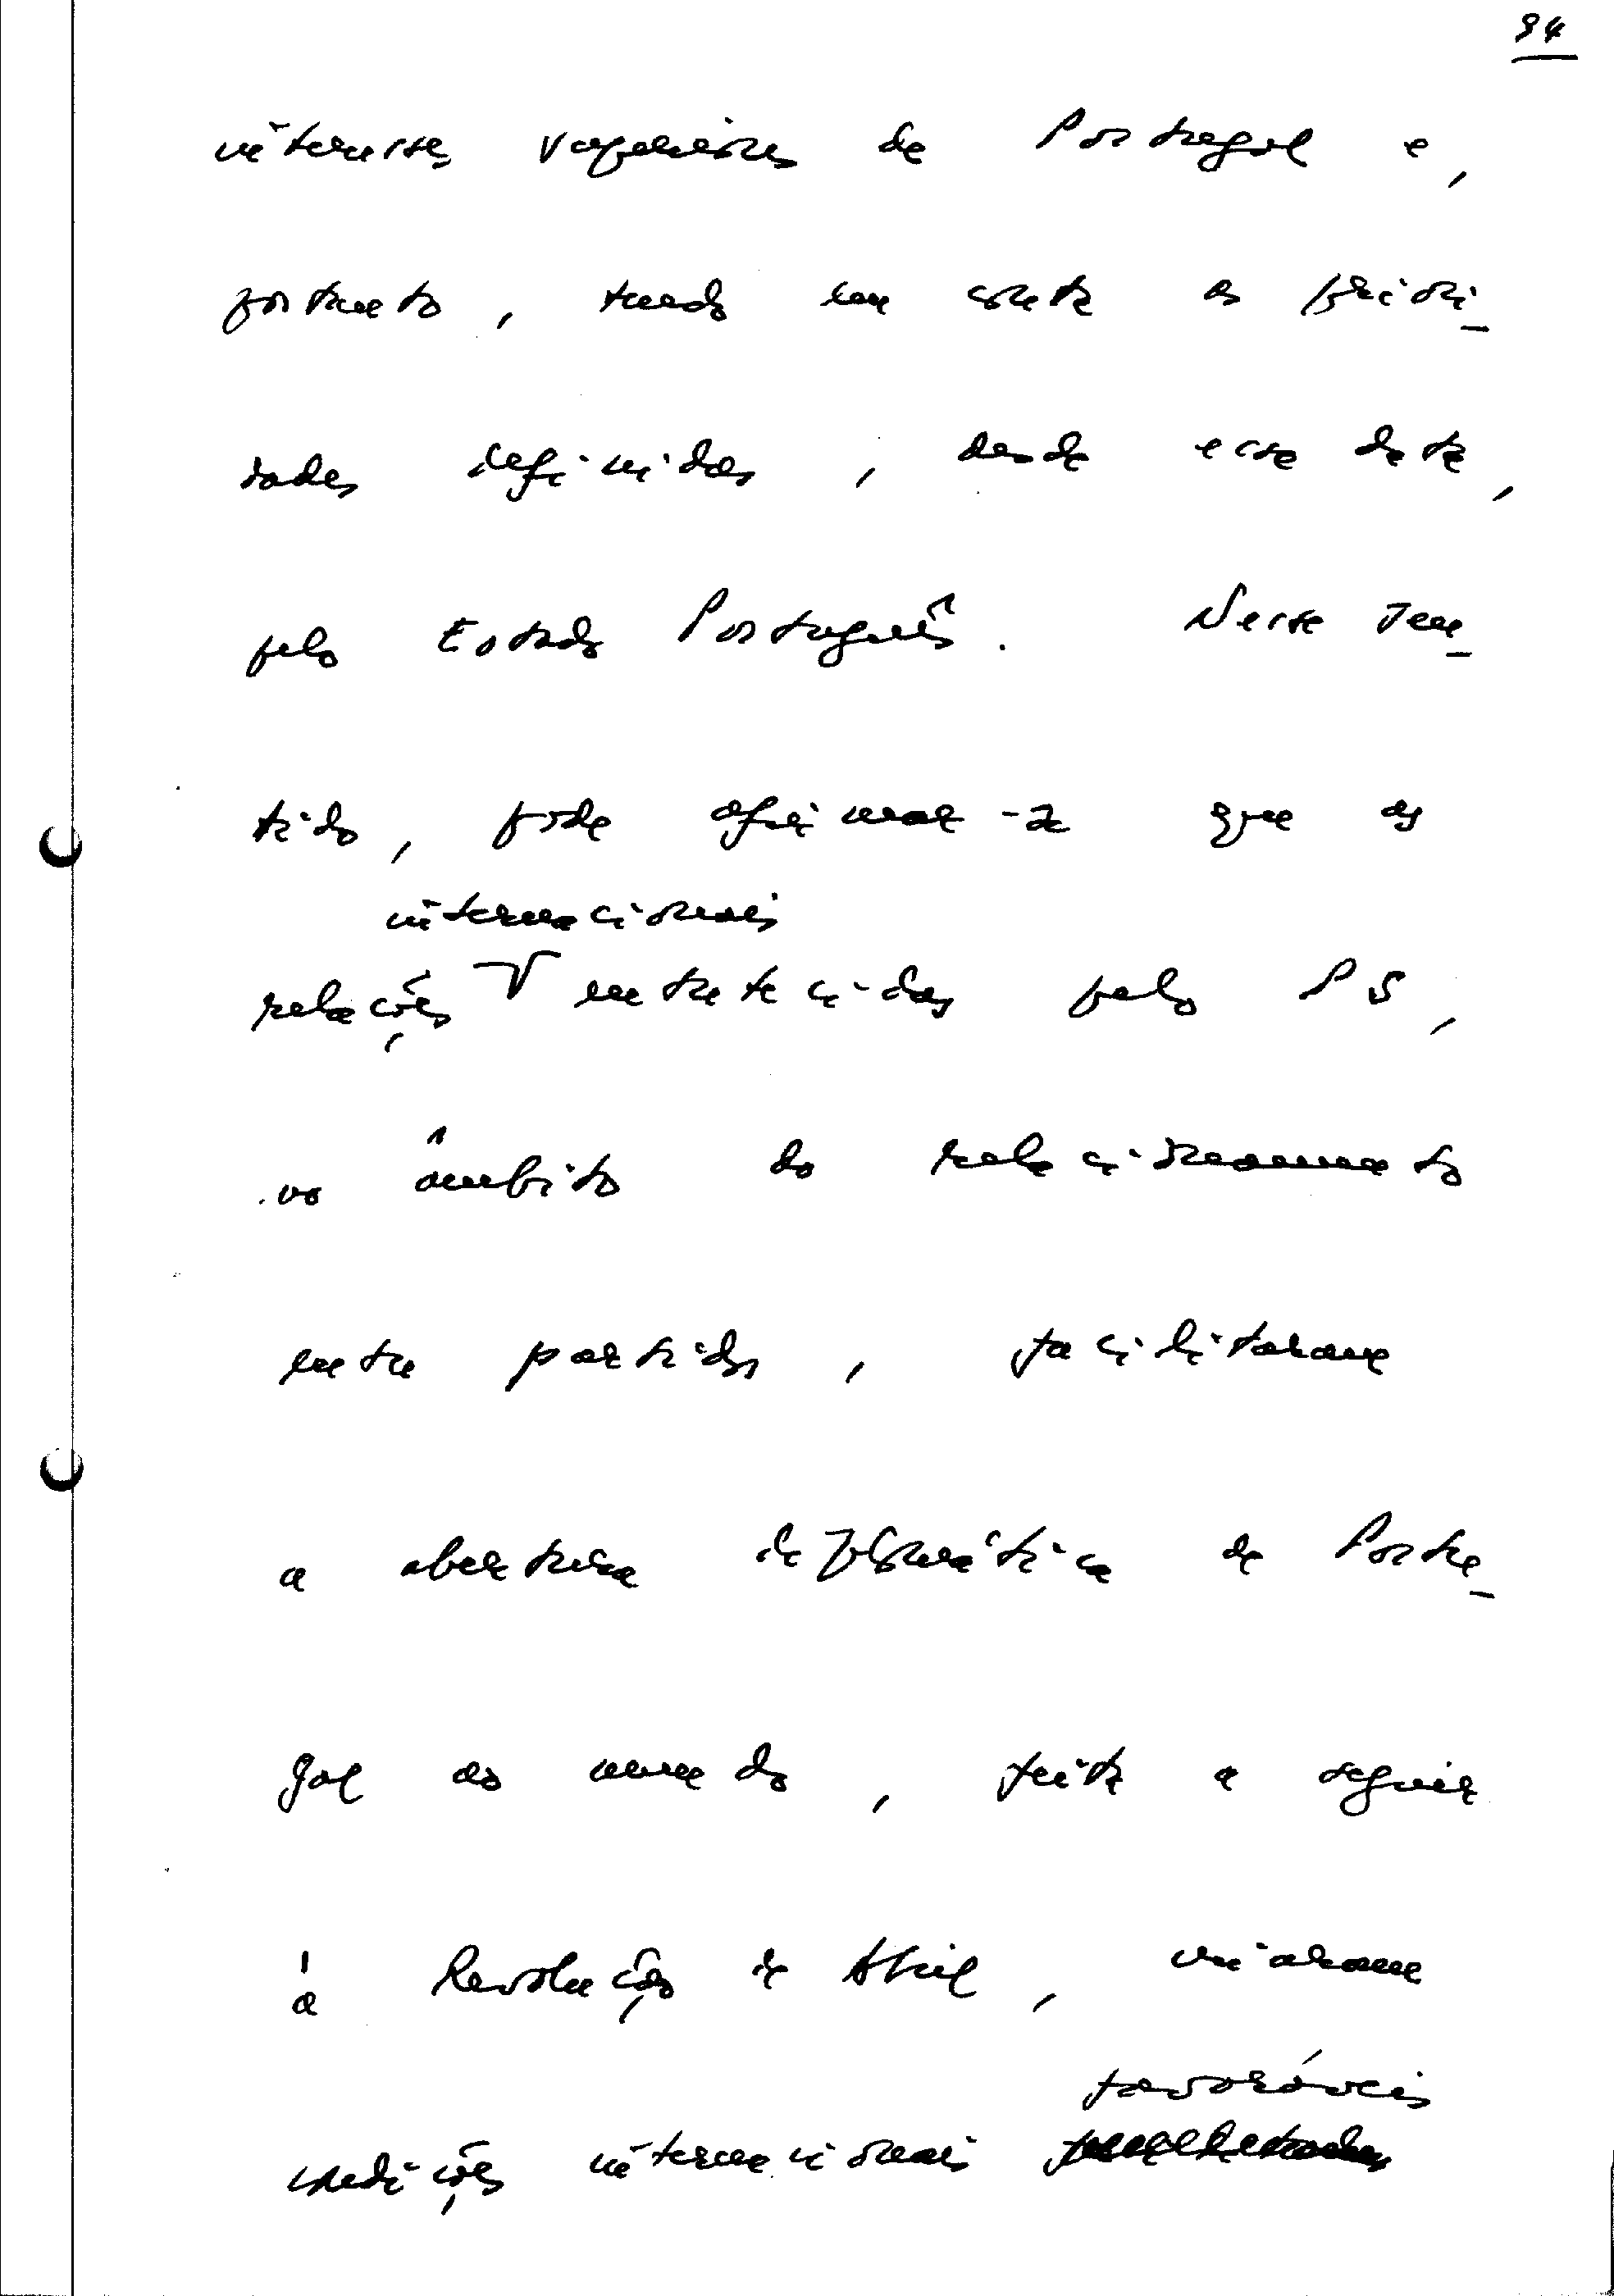 94
interesses superiores de Portugal e,
portanto, tendo em conta as priori-
dades definidas, desde essa data,
pelo Estado Português. Nesse sen-
tido, pode afirmar-se que as
internacionais
relações entretecidas pelo PS,
no âmbito do relacionamento
entre partidos, facilitaram
a abertura diplomática de Portu-
gal ao mundo, feita a seguir
à Revolução de Abril, criaram
favoráveis
condições internacionais